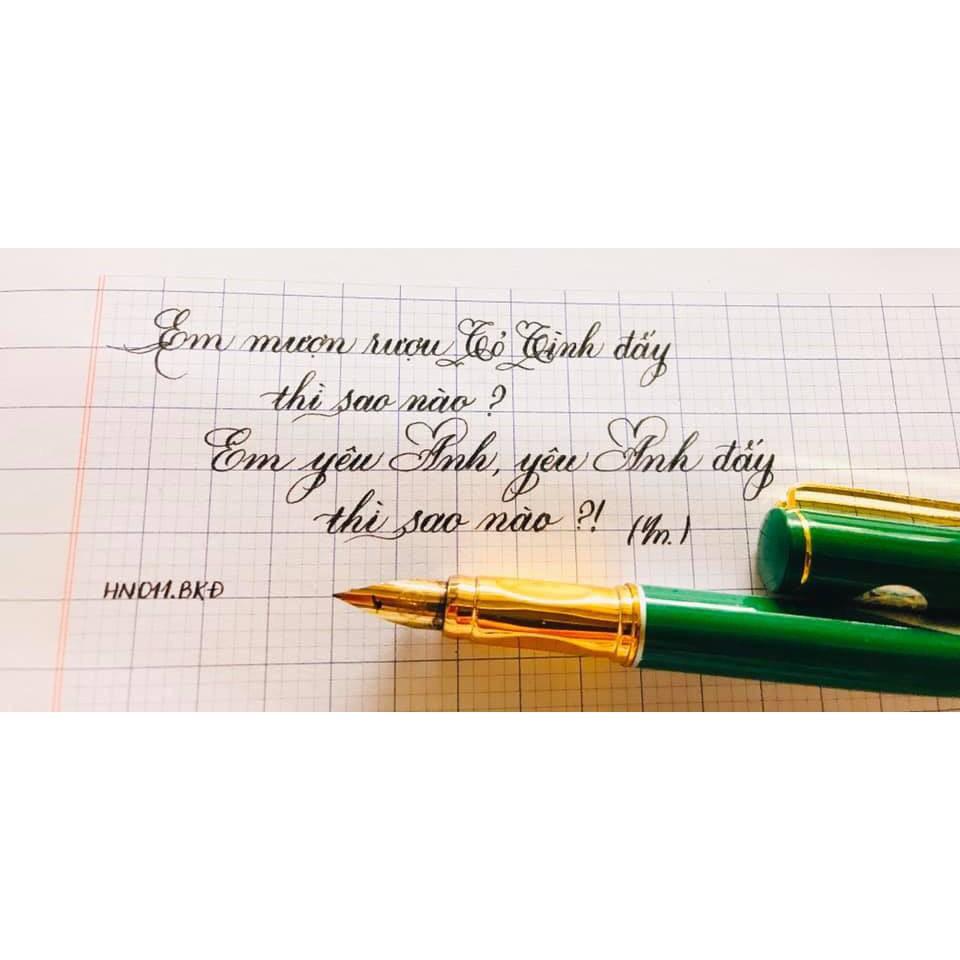 Em mượn rượu Tỏ Tình đấy
thì sao nào ?
Em yêu Anh, yêu Anh đấy
thì sao nào ?!
HN011.BKĐ